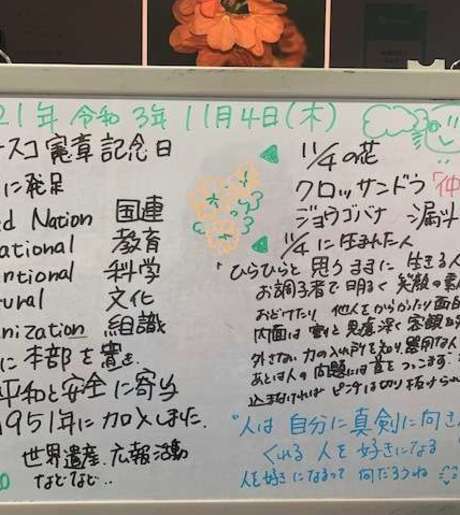 21年 令和3年 11月4日(木)
スコ憲章記念日
に発足
ed Nation 国連
ational 教育
entional 科学
tural 文化
nization 組織
に本部を置き
平和と安全に寄与
1951年に加入しました。
世界遺産、広報活動
などなど..
11/4の花
クロッサンドラ「仲
ジョウゴバナ 漏斗
11/4に生まれた人
「ひらひらと思うままに生きる人
お調子者で明るく笑顔の素
おどけたり 他人をからかったり面白
内面は割と見透深く客観
外さない力の入れ所を知り、器用な人
あとは人の問題には首をつっこます
込まなければピンチは切り抜けられ
"人は自分に真剣に向き
くれる人を好きになる
人を好きになるって何だろうね